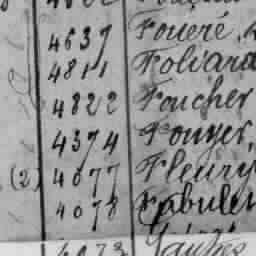 4637 Foueré,
4811 Foliard
4822 Foucher
4374 Fouyer,
(2) 4077 Fleury
4078 Fabulet